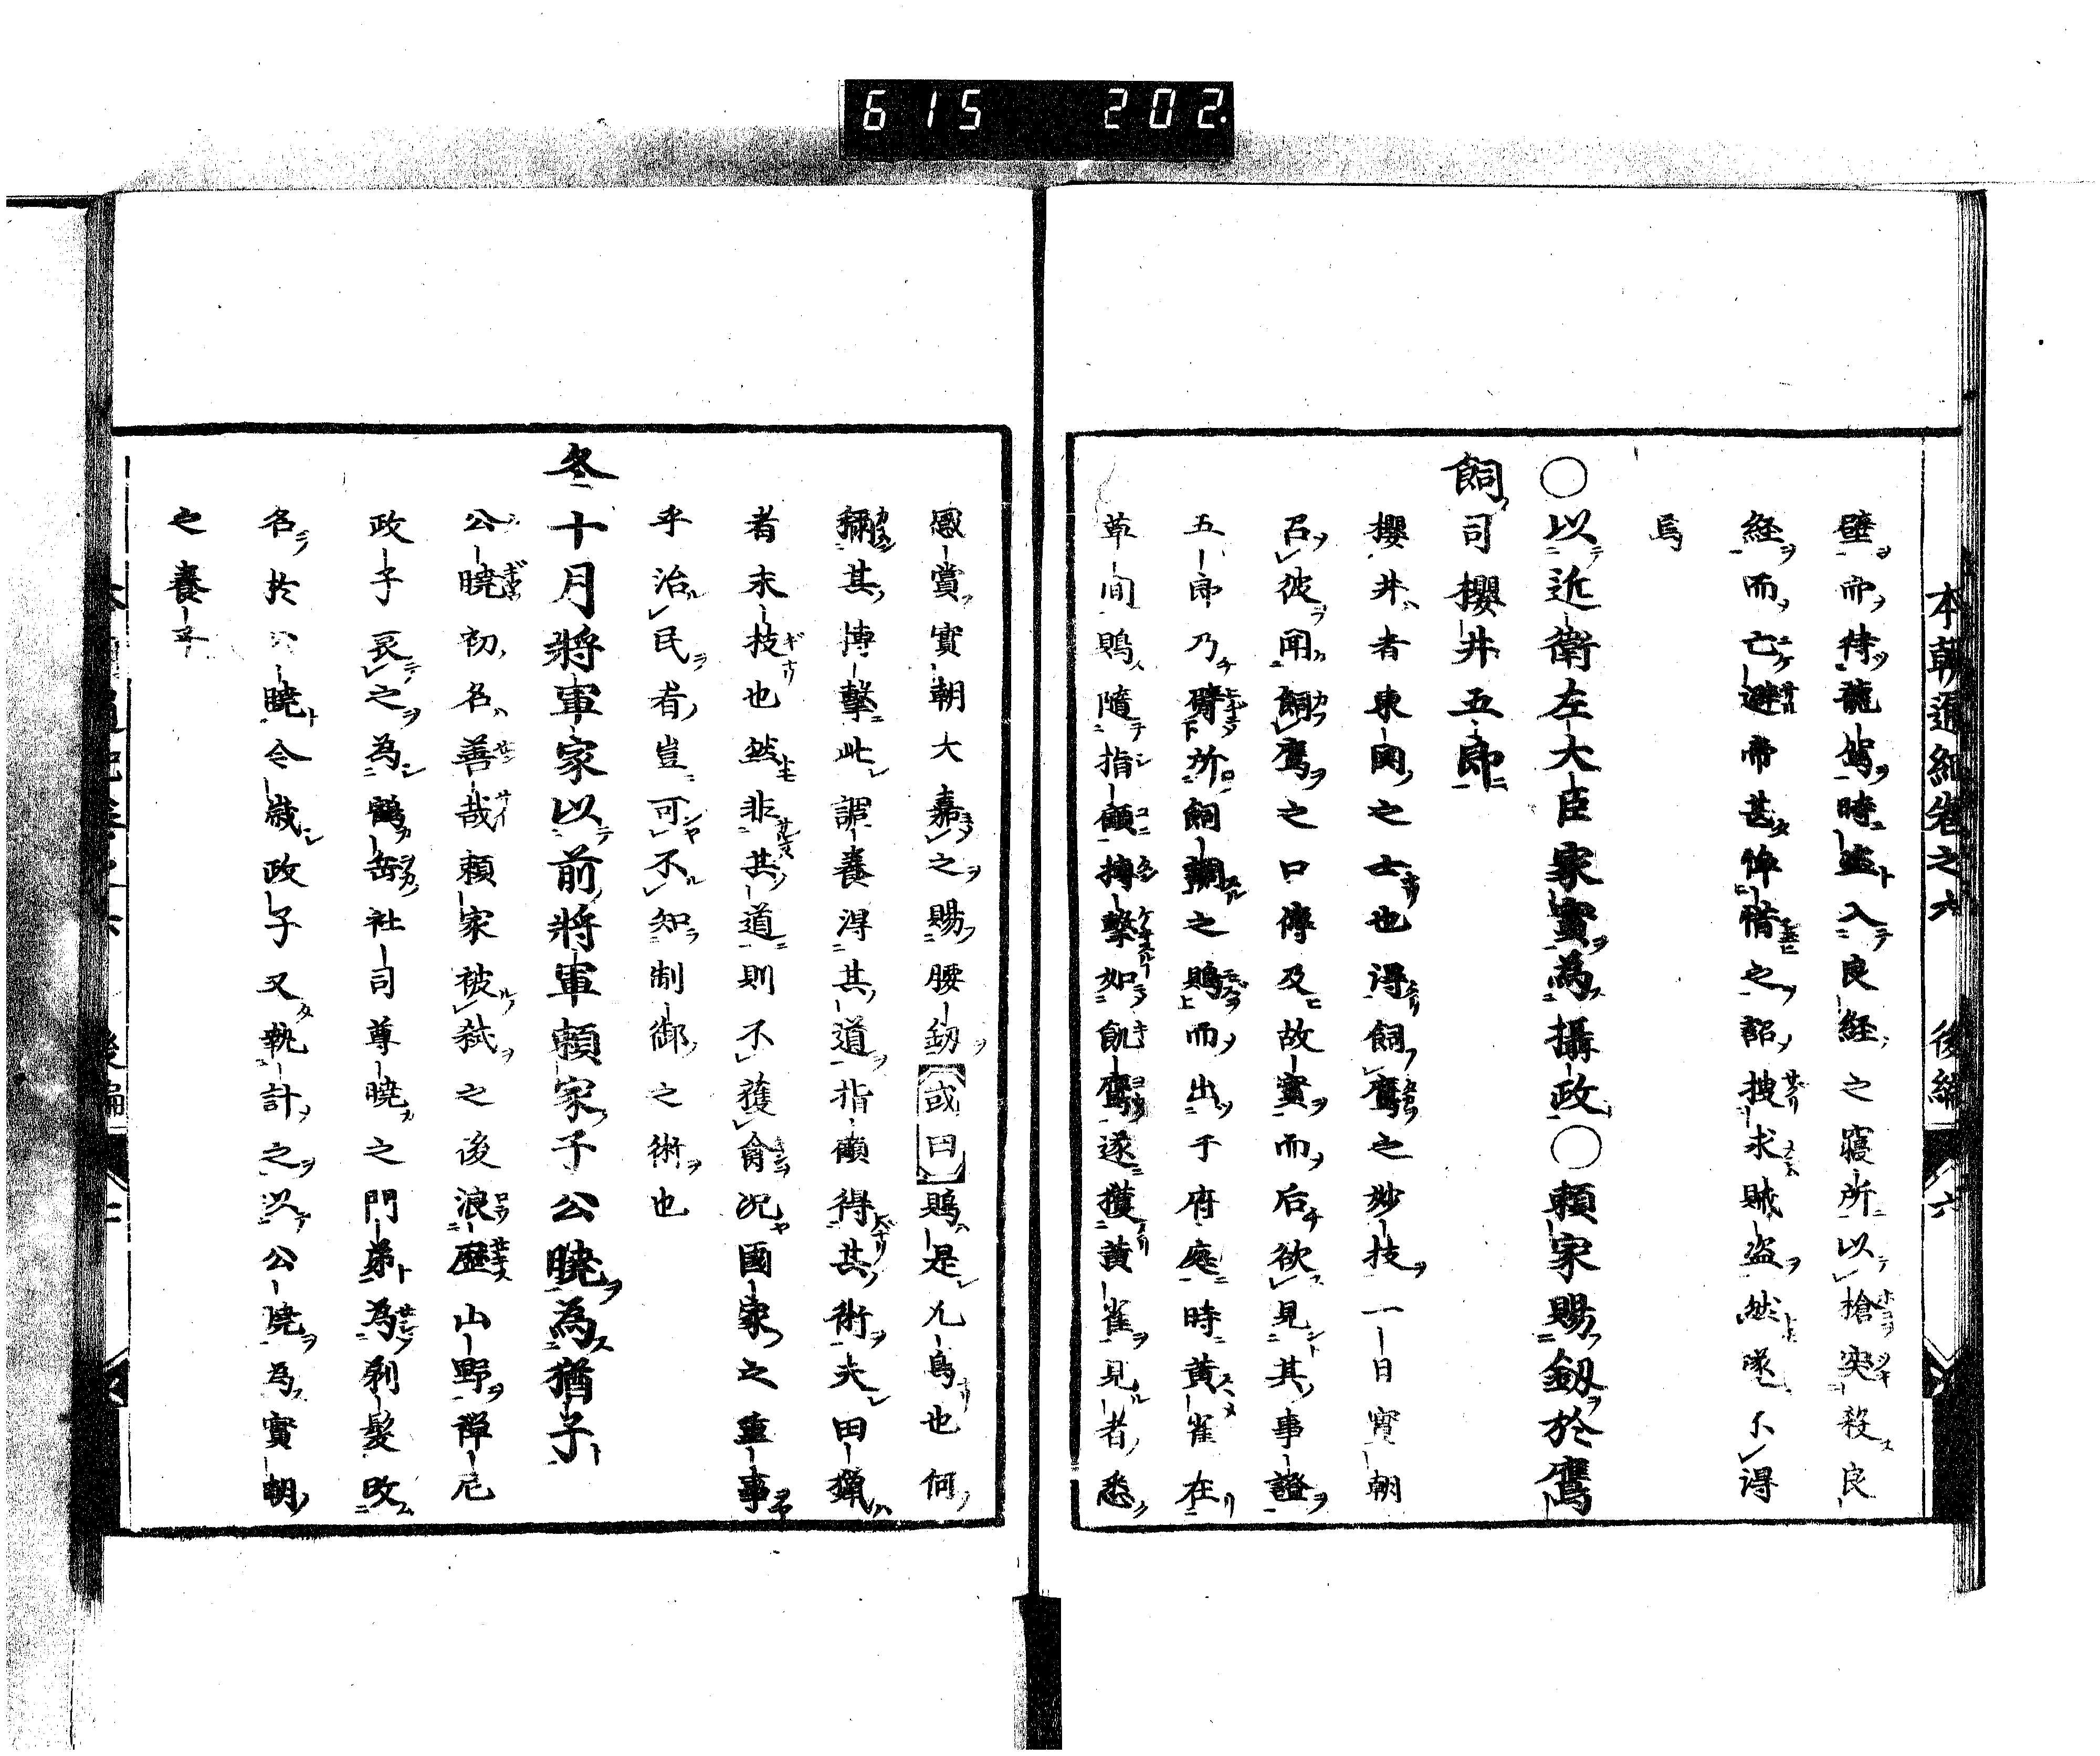 615 202.
本朝通紀卷之六 後編 六
壁帝待龍駕時盜入良経之寢所以槍突殺良
経而亡避帝甚悼惜之詔捜求賊盗然遂不得
焉
○以近衛左大臣家實為攝政○頼家賜釼於鷹
飼司櫻井五郎
櫻井者東関之士也得飼鷹之妙技一日實朝
召彼聞飼鷹之口傳及故實而后欲見其事證
五郎乃臂所飼調之鵙而出于府庭時黄雀在
草間鵙隨指顧摶擊如飢鷹遂獲黄雀見者悉
感賞實朝大嘉之賜腰釼或曰鵙是九鳥也何
獮其博擊此謂養得其道指顧得其術夫田獵
者末技也然非其道則不獲禽况國家之重事
乎治民者豈可不知制御之術也
冬十月將軍家以前將軍頼家子公曉為猶子
公曉初名善哉頼家被弑之後浪歷山野禅尼
政子哀之為鶴岳社司尊曉之門弟為剃髮改
名於公曉令歲政子又執計之以公曉為實朝
之養子